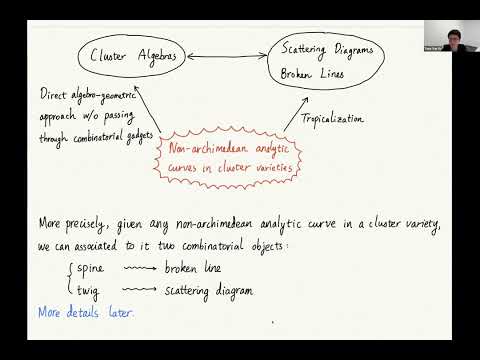 Cluster Algebras
Scattering Diagrams
Broken Lines
Direct algebro-geometric
approach w/o passing
through combinatorial gadgets
Tropicalization
Non-archimedean analytic
curves in cluster varieties
More precisely, given any non-archimedean analytic curve in a cluster variety,
we can associated to it two combinatorial objects:
spine broken line
twig scattering diagram
More details later.